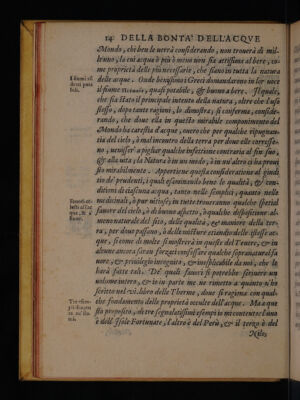 14 DELLA BONTA' DELL'ACQVE
Mondo, chi ben le verrà considerando, non trouerà di mil-
lenno, la cui acqua è più ò meno non sia attissima al bere, co-
me proprietà delle più necessarie, che siano in tutta la natura
delle acque. Onde benissimo i Greci domandarono in lor voce
il fiume quasi potabile, & buono a bere. Ilquale,
che sia stato il principale intento della natura, oltre che l'uso
stesso, dopo tante ragioni, lo dimostra, si conferma, conside-
rando, che doue ella in questo mirabile componimento del
Mondo ha carestia d'acqua, ouero che per qualche repugnan-
tia del cielo, ò mal incontro della terra per doue elle corresse-
ro, venisser' a pigliar qualche infettione contraria al suo uso,
& alla vita; la Natura ò in un modo, ò in un'altro ci ha proui
sto mirabilmente. Appartiene questa consideratione al giudi-
tio de' prudenti, i quali esaminando bene le qualità, & con-
ditioni di ciascuna acqua, tanto nelle semplici, quanto nelle
medicinali, ò pur nitose; in tutte troueranno qualche spetial
fauore del cielo, ò di buono aspetto, ò qualche
meno naturale del sito, delle qualità, & maniere della ter-
ra, per doue passano, ò delle misture delle istesse ac-
que, si come di molte si mostrerà in queste del Teuere, & in
alcune ancora saran forzati confessare qualche sopranatural fa
uore, & priuilegio incognito, & inesplicabile da noi, che lo
harà fatte tali. De' quali fauori si potrebbe scriuere un
volume intero, & io in parte me ne rimetto a quanto n'ho
scritto nel vi. libro delle Therme, doue si ragiona con qual-
che fondamento delle proprietà occulte dell'acque. Ma a que
sto proposito, di tre segnalatissimi esempi io mi contento: l'uno
è dell'Isole Fortunate; l'altro è del Perù, & il terzo è del
Nilo;
I fiumi es
ser